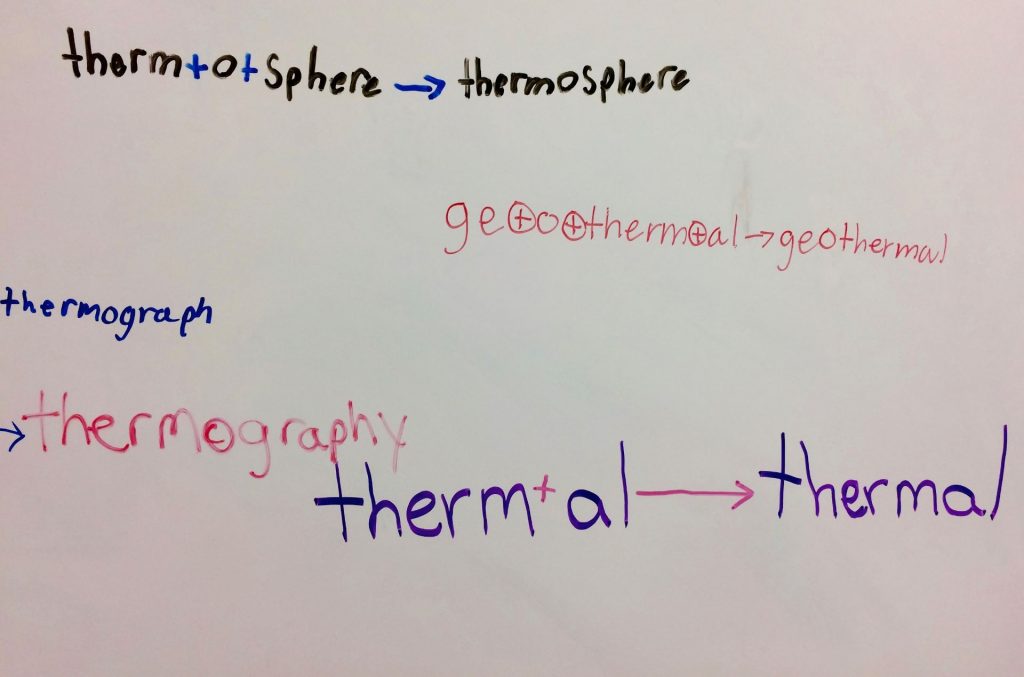 therm+o+sphere → thermosphere
ge⊕o⊕therm⊕al → geothermal
thermograph
→ thermography
therm+al → thermal